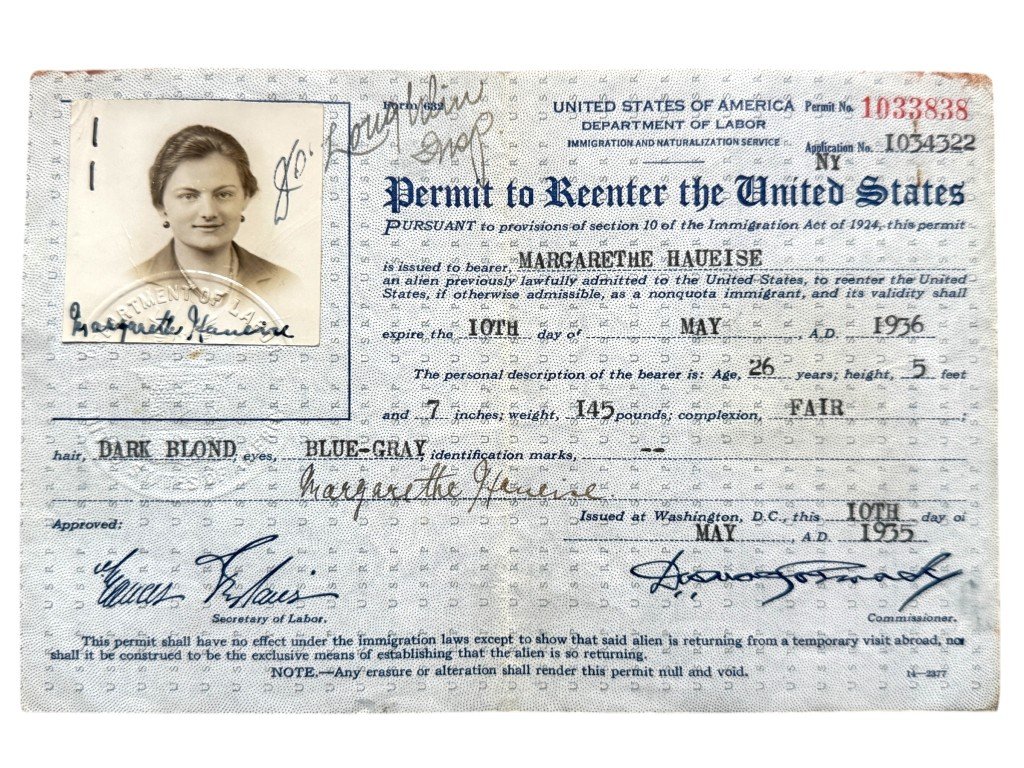 Form 632
UNITED STATES OF AMERICA Permit No. 1033838
DEPARTMENT OF LABOR
IMMIGRATION AND NATURALIZATION SERVICE Application No. 1034322
NY
Permit to Reenter the United States
PURSUANT to provisions of section 10 of the Immigration Act of 1924, this permit
is issued to bearer, MARGARETHE HAUEISE
an alien previously lawfully admitted to the United States, to reenter the United
States, if otherwise admissible, as a nonquota immigrant, and its validity shall
Margarethe Haueise
expire the 10TH day of MAY, A.D. 1936
The personal description of the bearer is: Age, 26 years; height, 5 feet
and 7 inches; weight, 145 pounds; complexion, FAIR;
hair, DARK BLOND, eyes, BLUE-GRAY, identification marks, --
Margarethe Haueise.
Issued at Washington, D.C., this 10TH day of
MAY, A.D. 1935
Approved:
Secretary of Labor. Commissioner.
This permit shall have no effect under the immigration laws except to show that said alien is returning from a temporary visit abroad, nor
shall it be construed to be the exclusive means of establishing that the alien is so returning.
NOTE.—Any erasure or alteration shall render this permit null and void. 14—2377